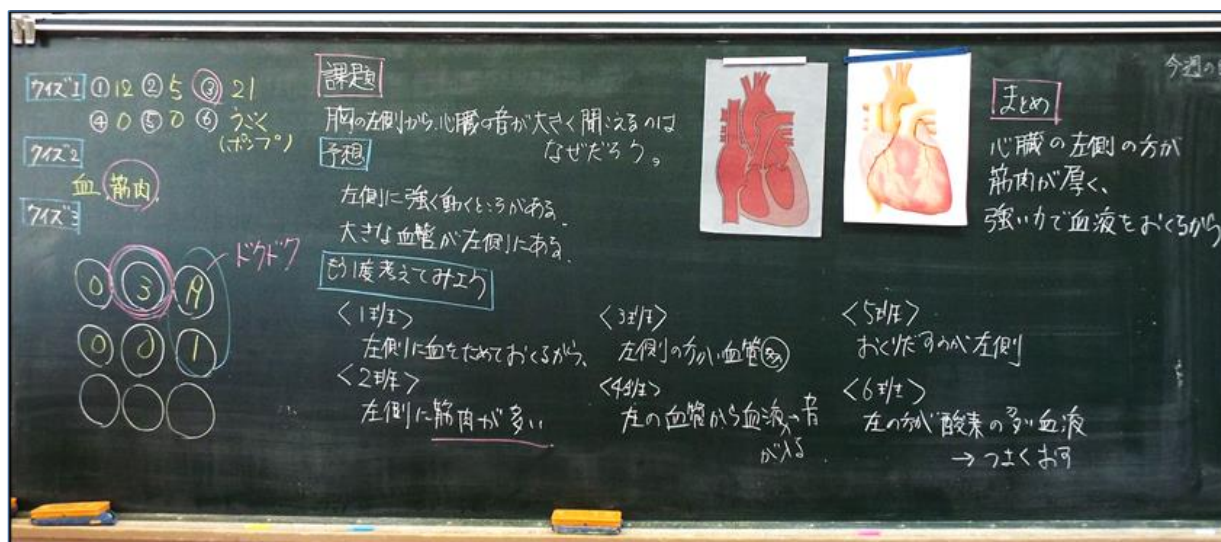 クイズ1 ① 12 ② 5 ③ 21
④ 0 ⑤ 0 ⑥ うごく
(ポンプ)
クイズ2
血 筋肉
クイズ3
ドクドク
0 3 A
0 0 1
課題
胸の左側から、心臓の音が大きく聞こえるのは
なぜだろう。
予想
左側に強く動くところがある
大きな血管が左側にある
もう1度考えてみよう
<1ぱん>
左側に血をためておくるから、
<2はん>
左側に筋肉が多い
<3ぱん>
左側の方が血管多
<4はん>
左の血管から血液→音
が入る
<5はん>
おくりだすのが左側
<6ぱん>
左の方が酸素の多い血液
→つよくおす
まとめ
心臓の左側の方が
筋肉が厚く、
強い力で血液をおくるから
今週の